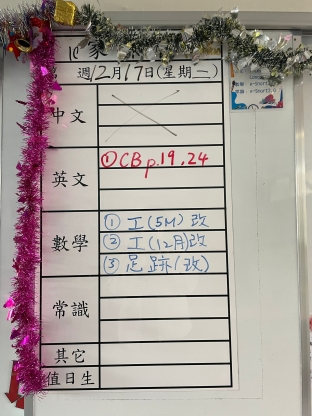 家
週12月17日(星期二)
中文
英文 ①CB p.19,24
數學 ①工(5M)改
②工(12月)改
③足跡(改)
常識
其它
值日生